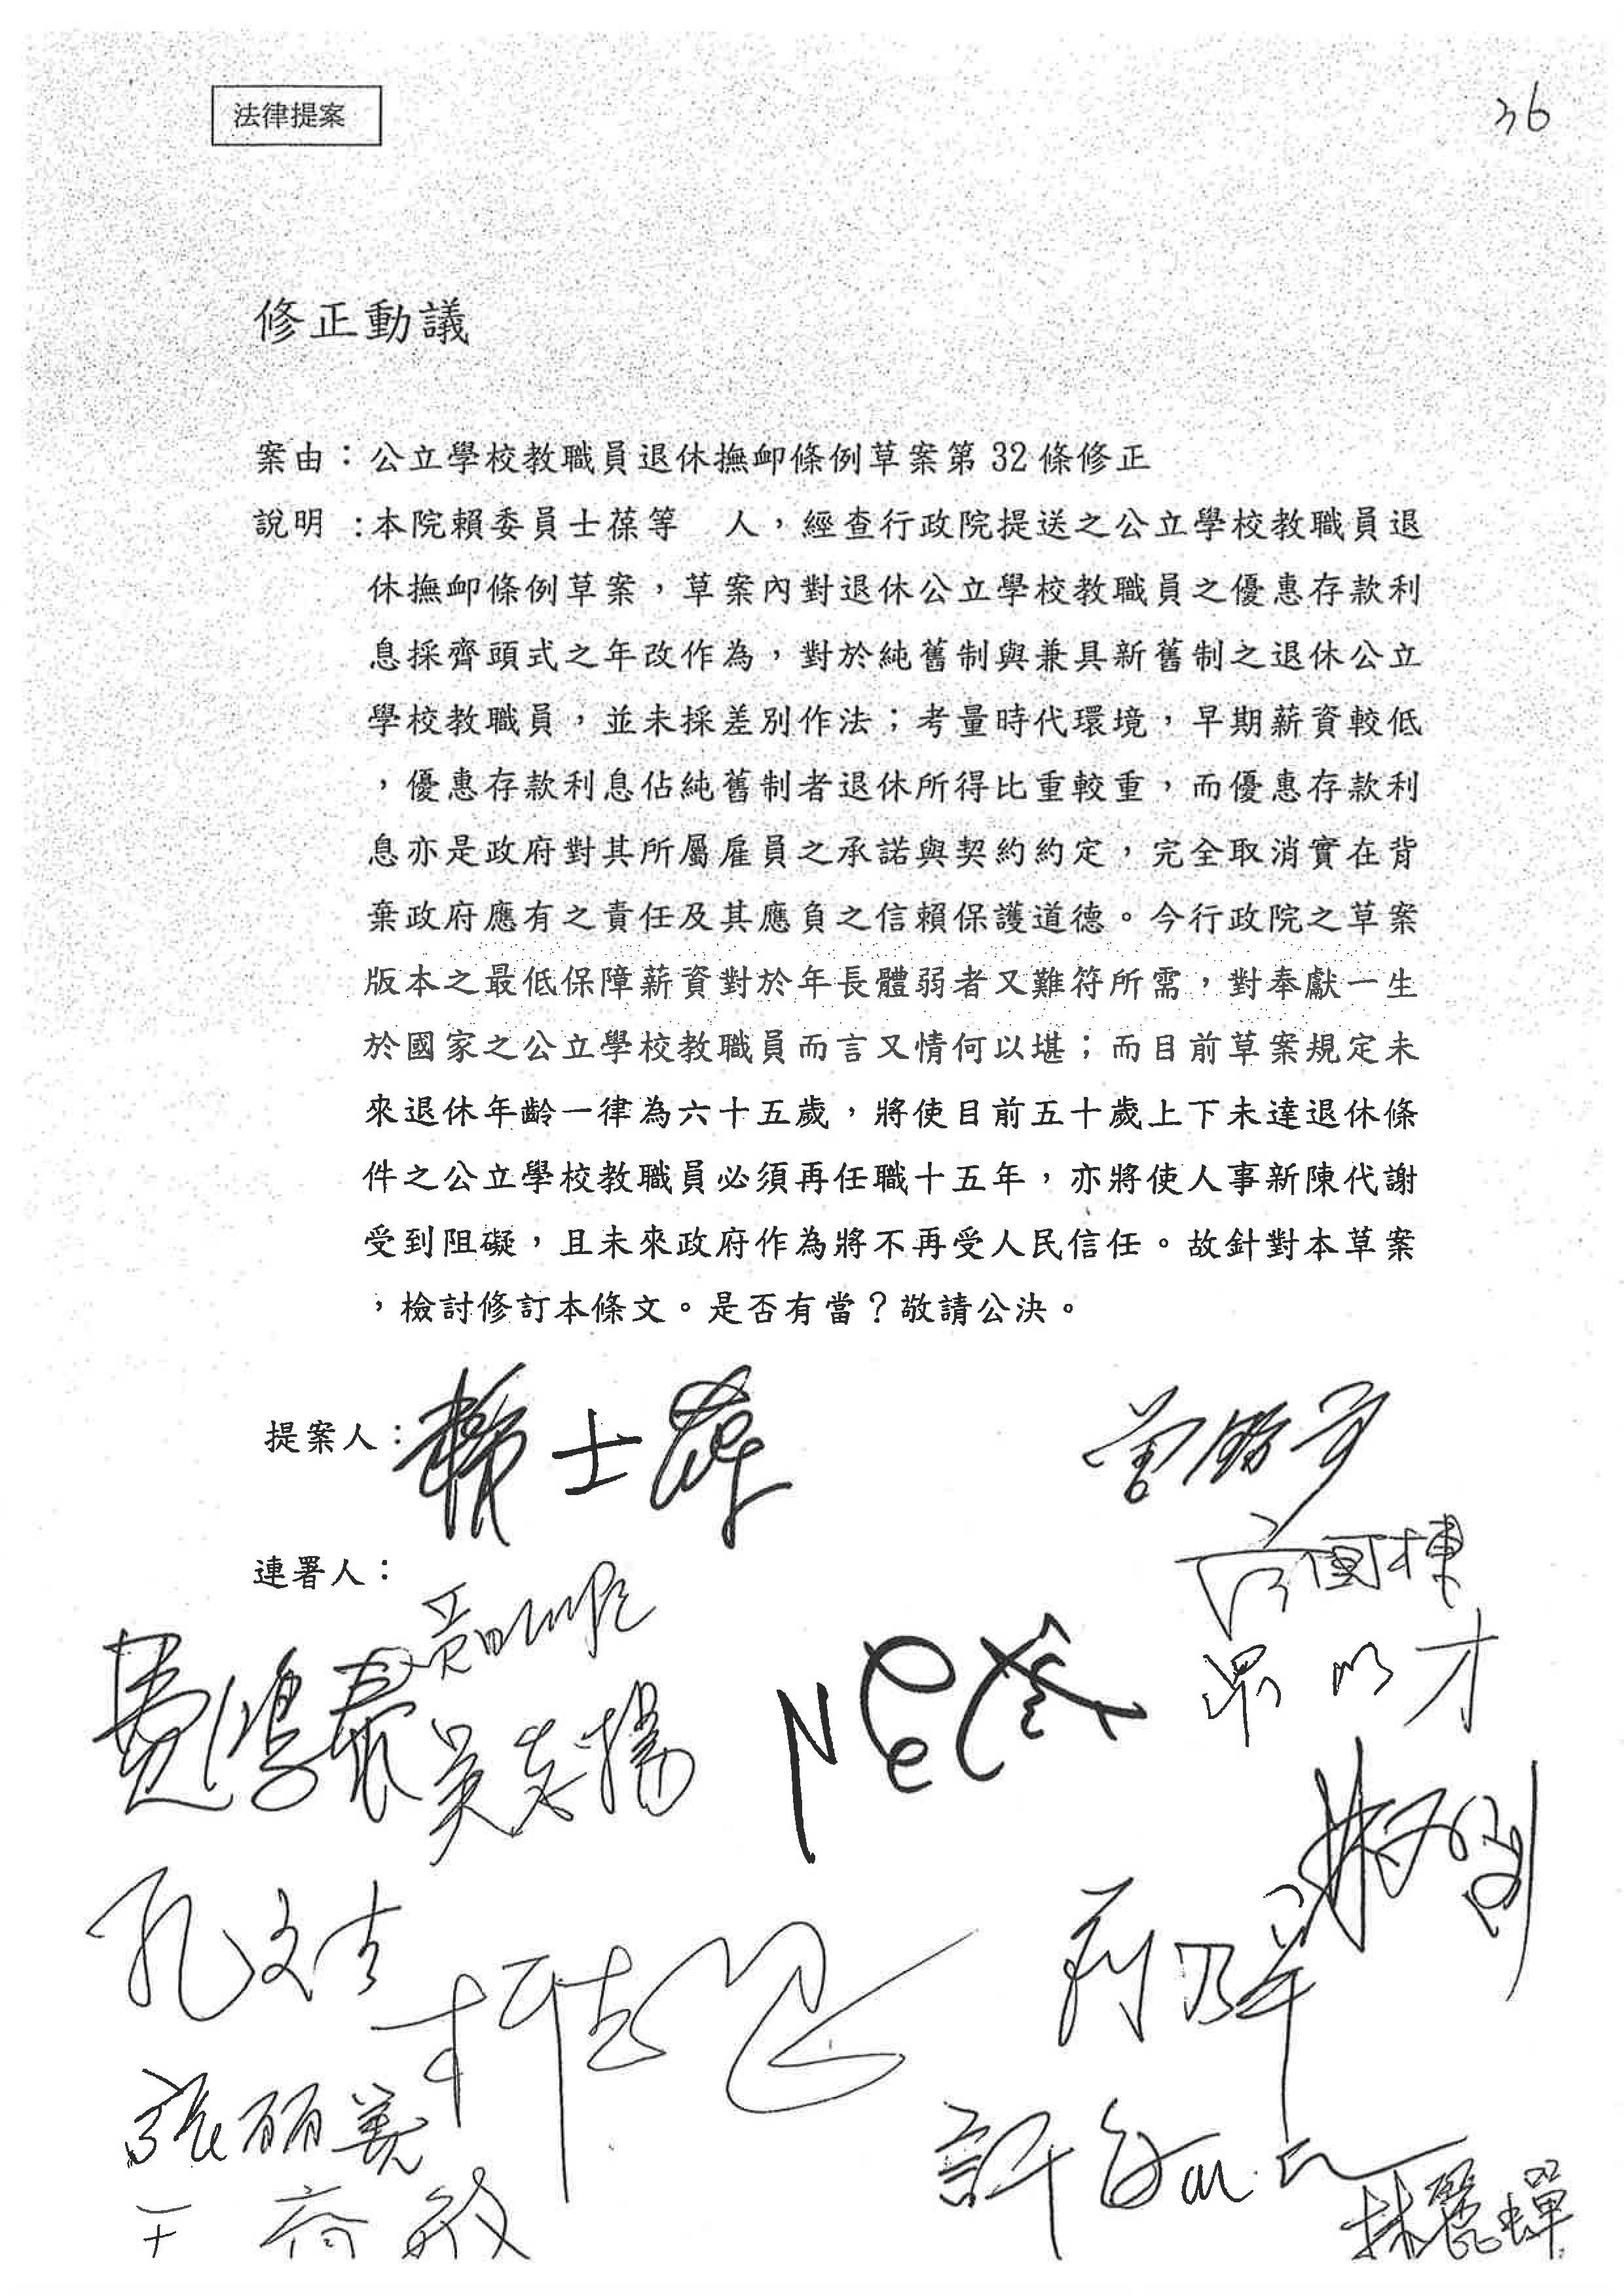 法律提案
36
修正動議
案由：公立學校教職員退休撫卹條例草案第32條修正
說明：本院賴委員士葆等　人，經查行政院提送之公立學校教職員退
休撫卹條例草案，草案內對退休公立學校教職員之優惠存款利
息採齊頭式之年改作為，對於純舊制與兼具新舊制之退休公立
學校教職員，並未採差別作法；考量時代環境，早期薪資較低
，優惠存款利息佔純舊制者退休所得比重較重，而優惠存款利
息亦是政府對其所屬雇員之承諾與契約約定，完全取消實在背
棄政府應有之責任及其應負之信賴保護道德。今行政院之草案
版本之最低保障薪資對於年長體弱者又難符所需，對奉獻一生
於國家之公立學校教職員而言又情何以堪；而目前草案規定未
來退休年齡一律為六十五歲，將使目前五十歲上下未達退休條
件之公立學校教職員必須再任職十五年，亦將使人事新陳代謝
受到阻礙，且未來政府作為將不再受人民信任。故針對本草案
，檢討修訂本條文。是否有當？敬請公決。
提案人：賴士葆
連署人：
費鴻泰
吳志揚
孔文吉
張麗善
林麗蟬